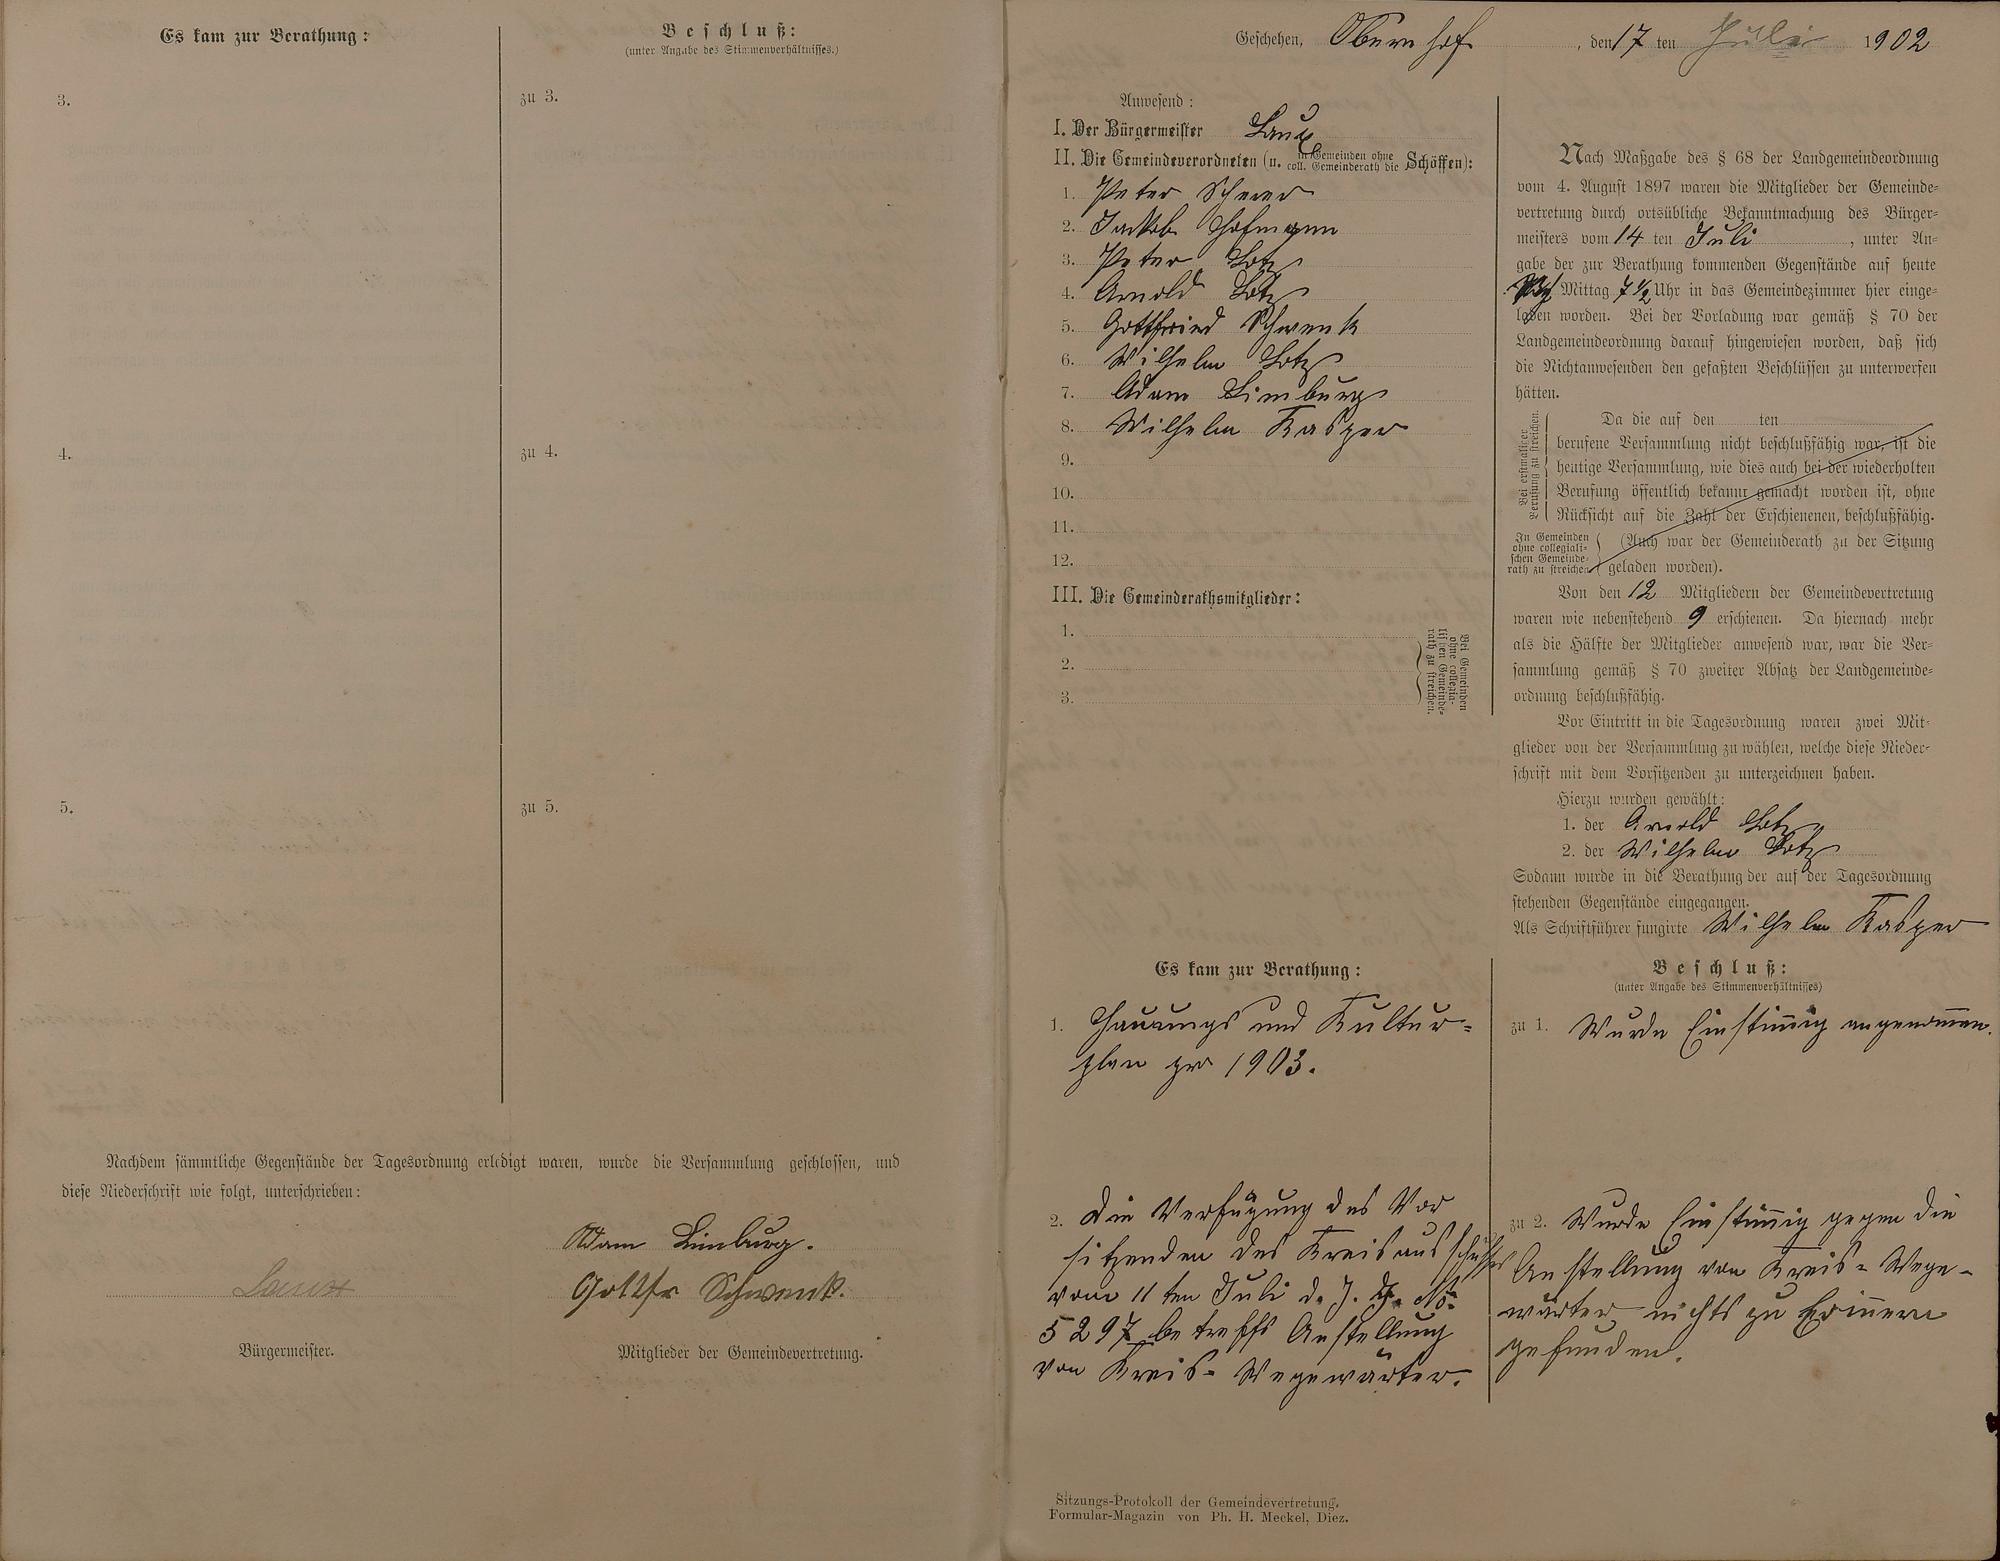 Es kam zur Berathung:
Beschluß:
(unter Angabe des Stimmenverhältnisses.)
3.
zu 3.
4.
zu 4.
5.
zu 5.
Nachdem sämmtliche Gegenstände der Tagesordnung erledigt waren, wurde die Versammlung geschlossen, und
diese Niederschrift wie folgt, unterschrieben:
Adam Limburg.
Laux
Gottfr Schwenk.
Bürgermeister.
Mitglieder der Gemeindevertretung.
Geschehen, Obernhof, den 17 ten Juli 1902
Anwesend:
I. Der Bürgermeister Laux
II. Die Gemeindeverordneten (u. in Gemeinden ohne coll. Gemeinderath die Schöffen):
1. Peter Scherer
2. Jackob Hofmann
3. Peter Lotz
4. Arnold Lotz
5. Gottfried Schwenk
6. Wilhelm Lotz
7. Adam Limburg
8. Wilhelm Kasper
9.
10.
11.
12.
III. Die Gemeinderathsmitglieder:
1.
2.
3.
Bei Gemeinden
ohne collegia-
lischen Gemeinde-
rath zu streichen.
Nach Maßgabe des § 68 der Landgemeindeordnung
vom 4. August 1897 waren die Mitglieder der Gemeinde-
vertretung durch ortsübliche Bekanntmachung des Bürger-
meisters vom 14 ten Juli, unter An-
gabe der zur Berathung kommenden Gegenstände auf heute
Mittag 7 1/2 Uhr in das Gemeindezimmer hier einge-
laden worden. Bei der Vorladung war gemäß § 70 der
Landgemeindeordnung darauf hingewiesen worden, daß sich
die Nichtanwesenden den gefaßten Beschlüssen zu unterwerfen
hätten.
Bei erstmaliger
Berufung zu streichen.
Da die auf den ten
berufene Versammlung nicht beschlußfähig war, ist die
heutige Versammlung, wie dies auch bei der wiederholten
Berufung öffentlich bekannt gemacht worden ist, ohne
Rücksicht auf die Zahl der Erschienenen, beschlußfähig.
In Gemeinden
ohne collegiali-
schen Gemeinde-
rath zu streichen
(Auch war der Gemeinderath zu der Sitzung
geladen worden).
Von den 12 Mitgliedern der Gemeindevertretung
waren wie nebenstehend 9 erschienen. Da hiernach mehr
als die Hälfte der Mitglieder anwesend war, war die Ver-
sammlung gemäß § 70 zweiter Absatz der Landgemeinde-
ordnung beschlußfähig.
Vor Eintritt in die Tagesordnung waren zwei Mit-
glieder von der Versammlung zu wählen, welche diese Nieder-
schrift mit dem Vorsitzenden zu unterzeichnen haben.
Hierzu wurden gewählt:
1. der Arnold Lotz
2. der Wilhelm Lotz
Sodann wurde in die Berathung der auf der Tagesordnung
stehenden Gegenstände eingegangen.
Als Schriftführer fungirte Wilhelm Kasper
Es kam zur Berathung:
Beschluß:
(unter Angabe des Stimmenverhältnisses)
1. Hauungs und Kultur-
plan pr 1903.
zu 1. Wurde Einstimig angenomen.
2. Die Verfügung des Vor
sitzenden des Kreisausschußes
vom 11 ten Juli d. J. No.
5297 betreffs Anstellung
von Kreis-Wegewärter.
zu 2. Wurde Einstimig gegen die
Anstellung von Kreis-Wege-
wärter nichts zu Erinern
gefunden.
Sitzungs-Protokoll der Gemeindevertretung.
Formular-Magazin von Ph. H. Meckel, Diez.